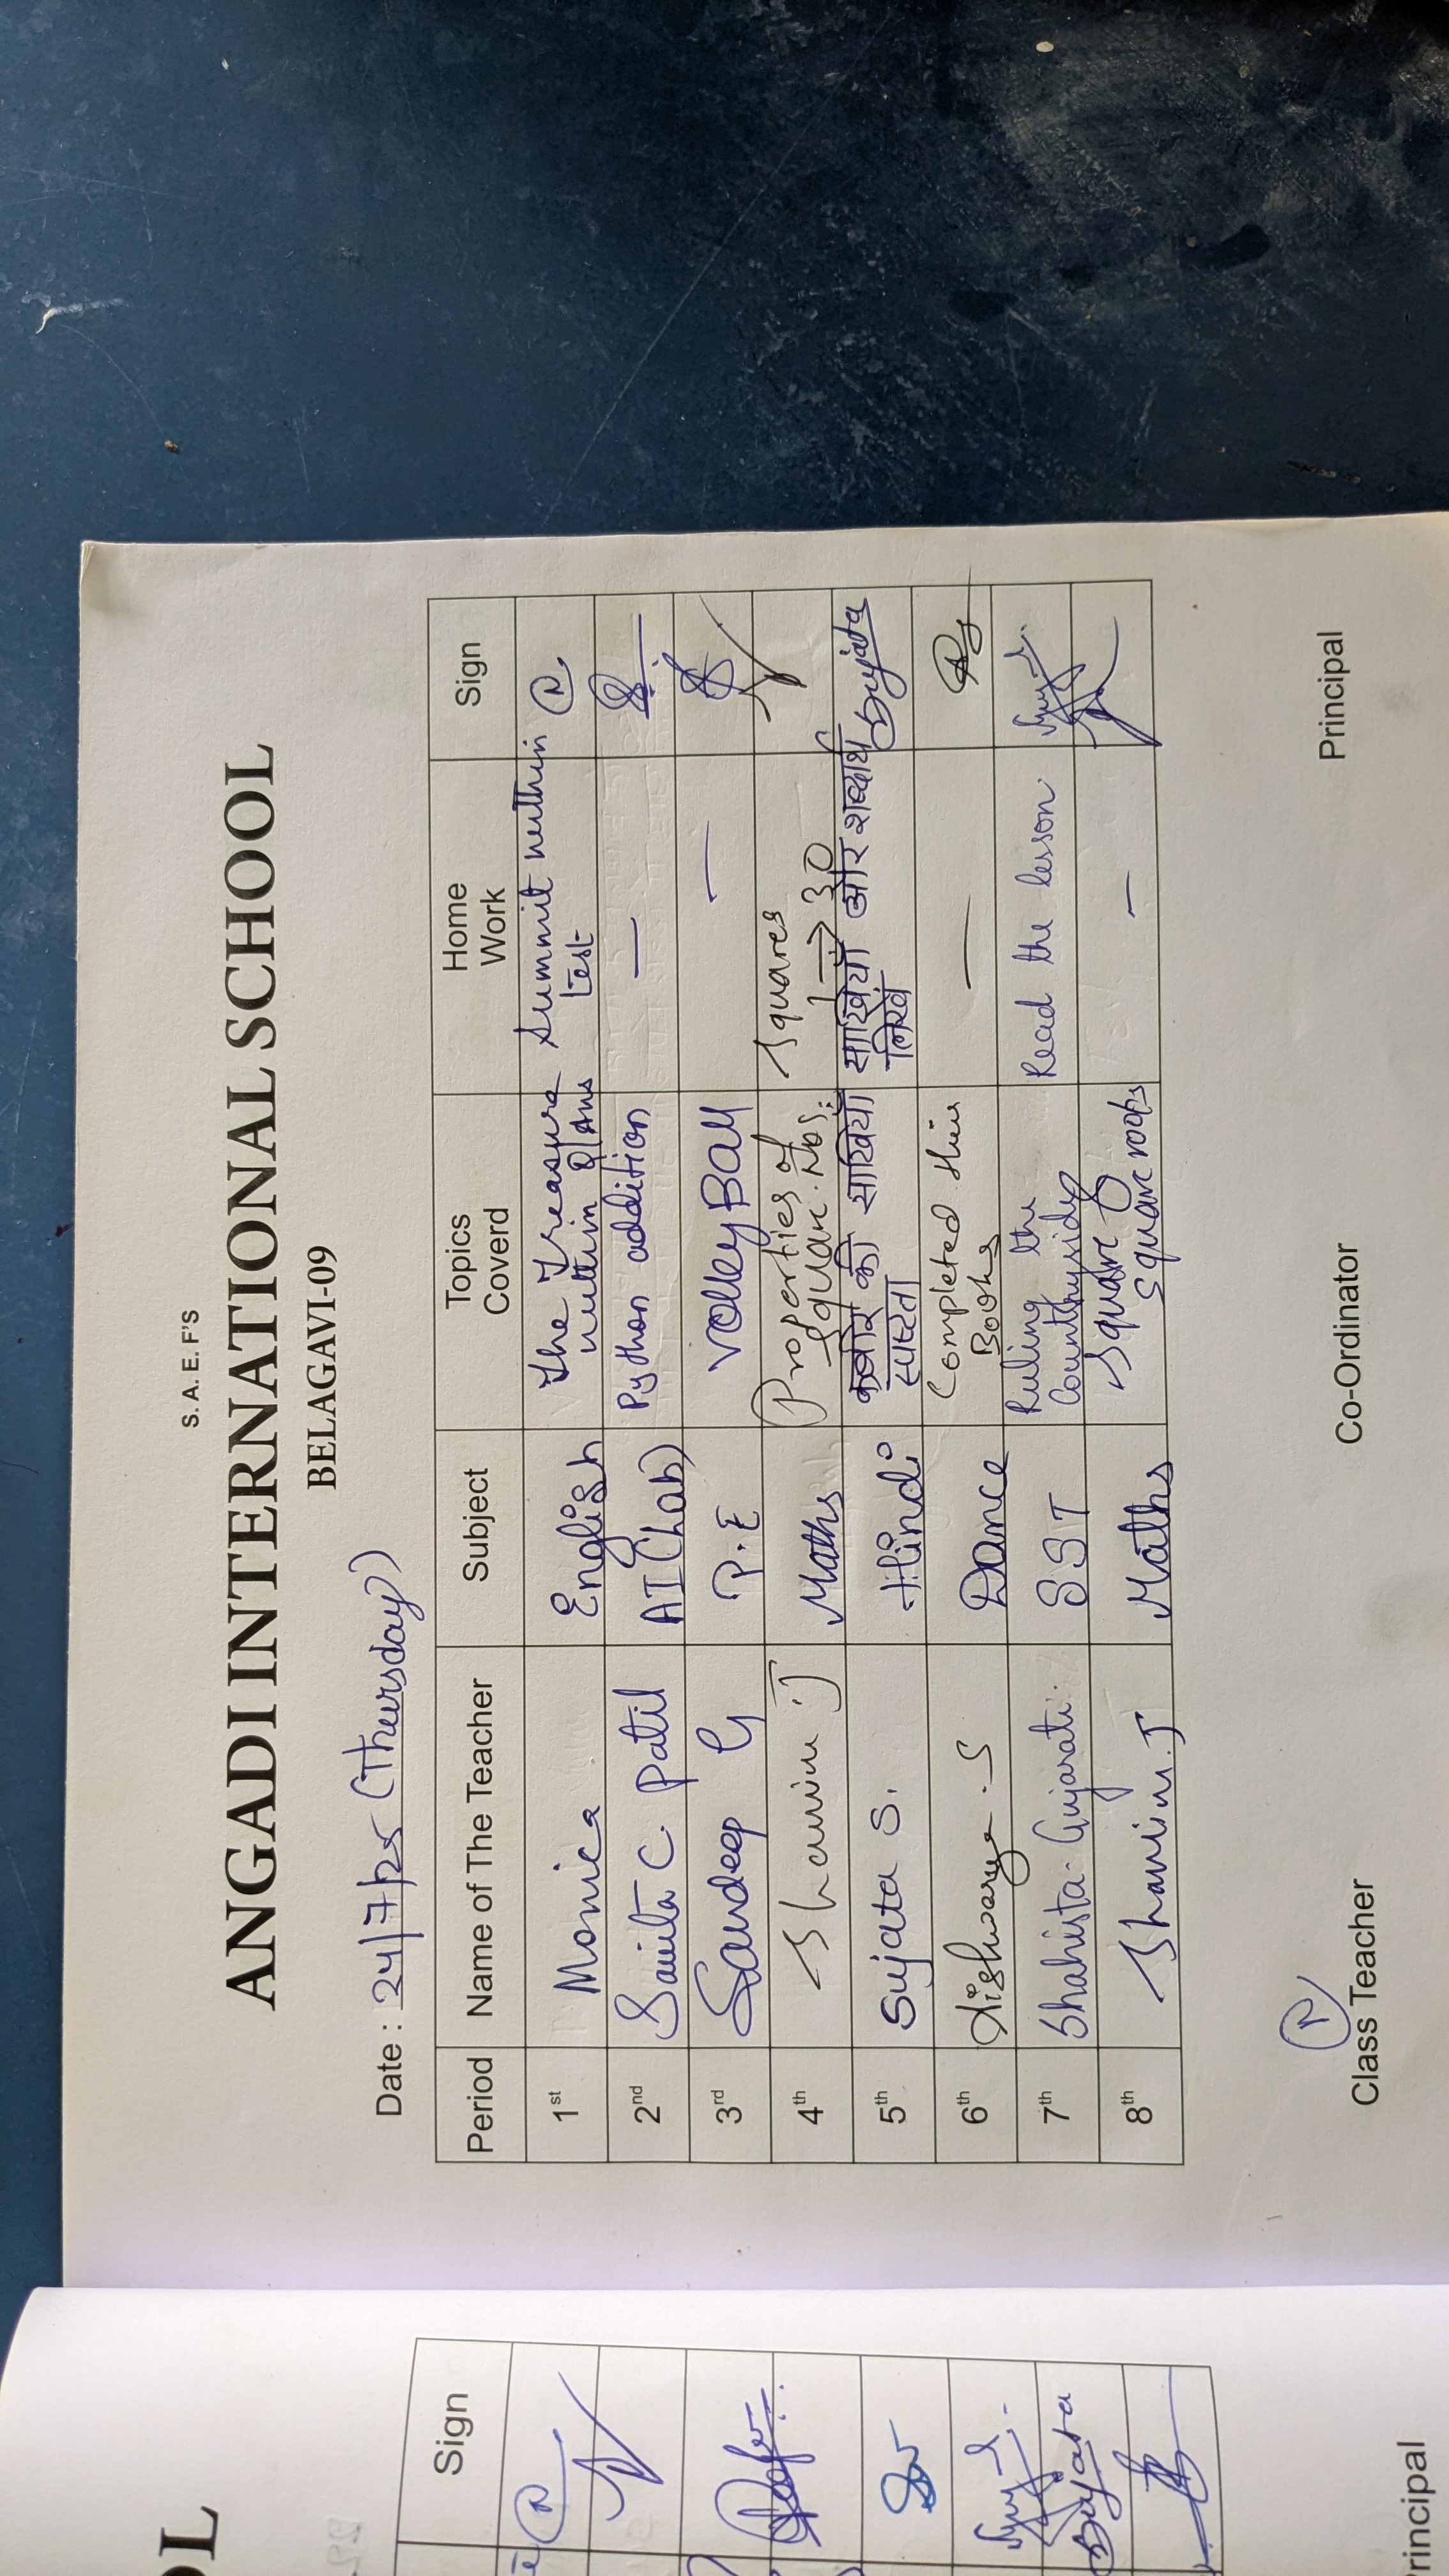 S. A. E. F'S
ANGADI INTERNATIONAL SCHOOL
BELAGAVI-09
Date : 24/7/25 (Thursday)
Period Name of The Teacher Subject Topics Coverd Home Work Sign
1st Monica English The Treasure within Q/Ans Summit within test
2nd Savita C. Patil AI (Lab) Python addition —
3rd Sandeep G P.E Volley Ball —
4th Shamim J Maths Properties of Square Nos. Squares 1 → 30
5th Sujata S. Hindi कबीर की साखियाँ स्पष्टता साखियाँ और शब्दार्थ लिखें Sujata
6th Aishwarya .S Dance Completed their Books —
7th Shahista Gujarati SST Ruling the Countryside Read the lesson
8th Shamim.J Maths Square & Square roots —
Class Teacher Co-Ordinator Principal
OL
Sign
Sujata
rincipal